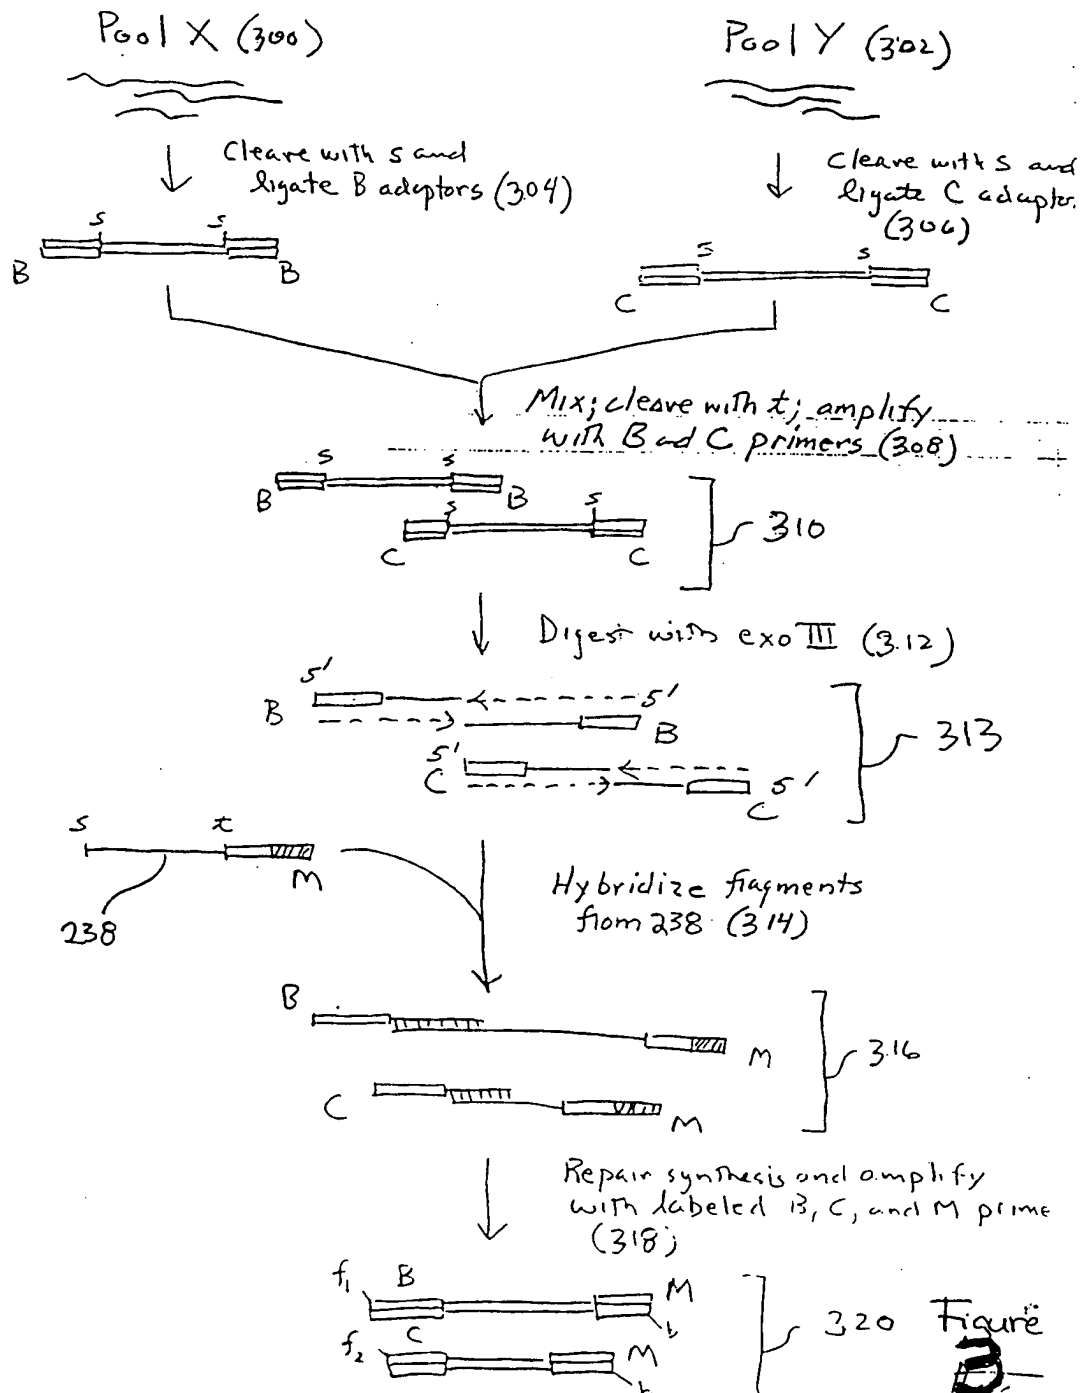 Pool X (300)
Pool Y (302)
Cleave with s and
ligate B adaptors (304)
Cleave with s and
ligate C adaptor
(306)
s s
B B
s s
C C
Mix; cleave with t; amplify
with B and C primers (308)
s s
B B
s s
C C
310
Digest with exo III (3.12)
5' 5'
B B
5'
C C 5'
313
s t
M
238
Hybridize fragments
from 238 (314)
B
M
C
M
316
Repair synthesis and amplify
with labeled B, C, and M prime
(318)
f1 B M
b
f2 C M
b
320
Figure
3